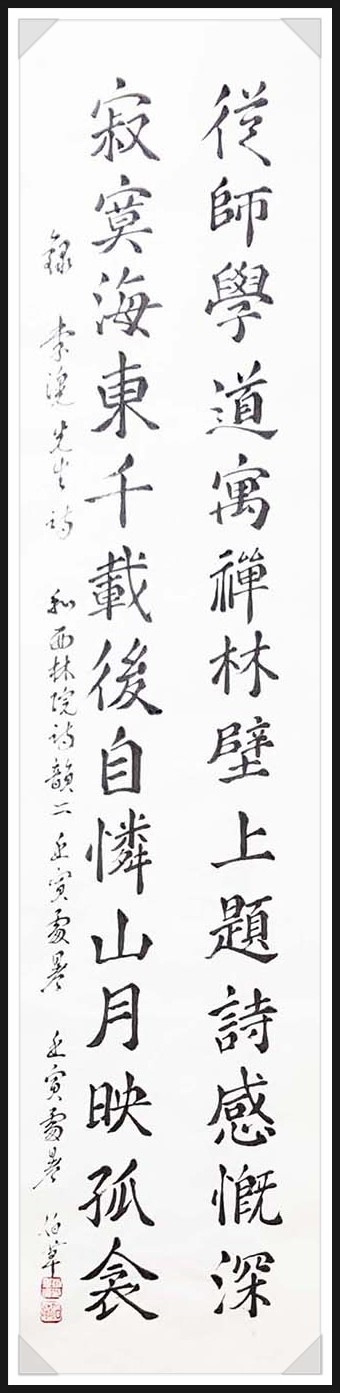 從師學道寓禪林壁上題詩感慨深
寂寞海東千載後自憐山月映孤衾
錄 李滉先生詩 和西林院詩韻二 壬寅處暑 壬寅處暑